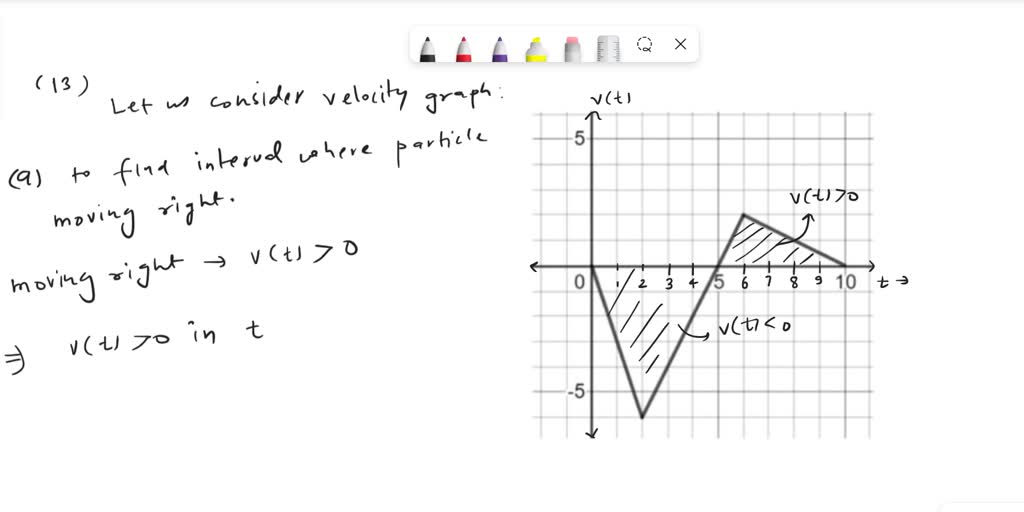 (13)
Let us consider velocity graph:
(a) to find interval where particle
moving right.
moving right → v(t) > 0
⇒ v(t) > 0 in t
v(t)
5
v(t) > 0
0 1 2 3 4 5 6 7 8 9 10 t →
v(t) < 0
-5